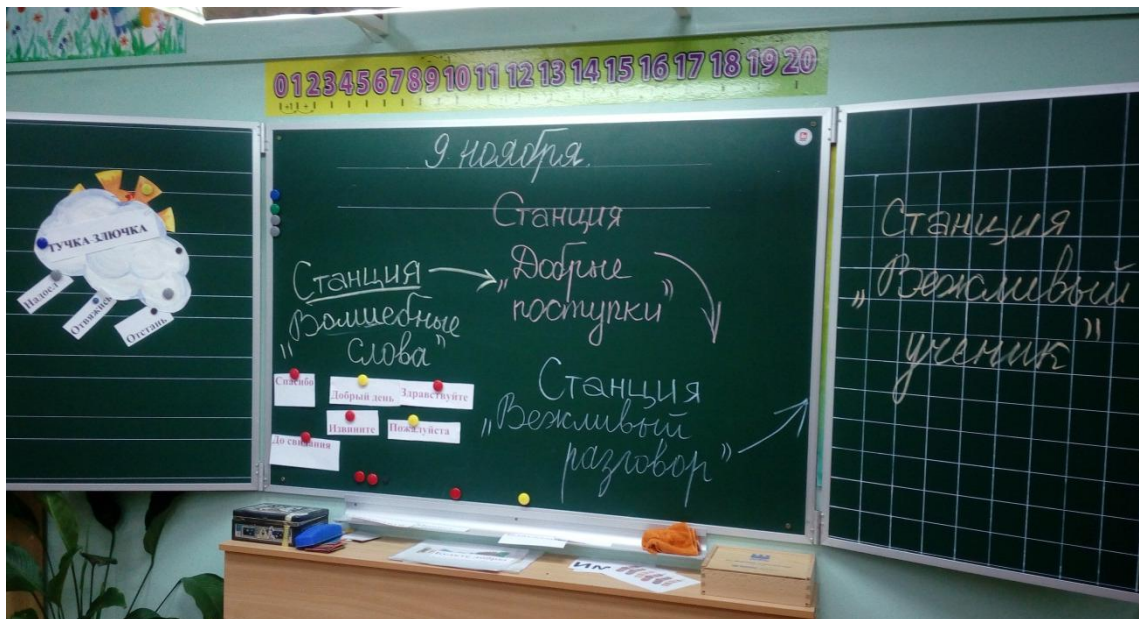 0 1 2 3 4 5 6 7 8 9 10 11 12 13 14 15 16 17 18 19 20
ТУЧКА-ЗЛЮЧКА
Надоел
Отвяжись
Отстань
9 ноября.
Станция
„Волшебные
слова"
Спасибо
Добрый день
Здравствуйте
Извините
Пожалуйста
До свидания
Станция
„Добрые
поступки"
Станция
„Вежливый
разговор"
Станция
„Вежливый
ученик"